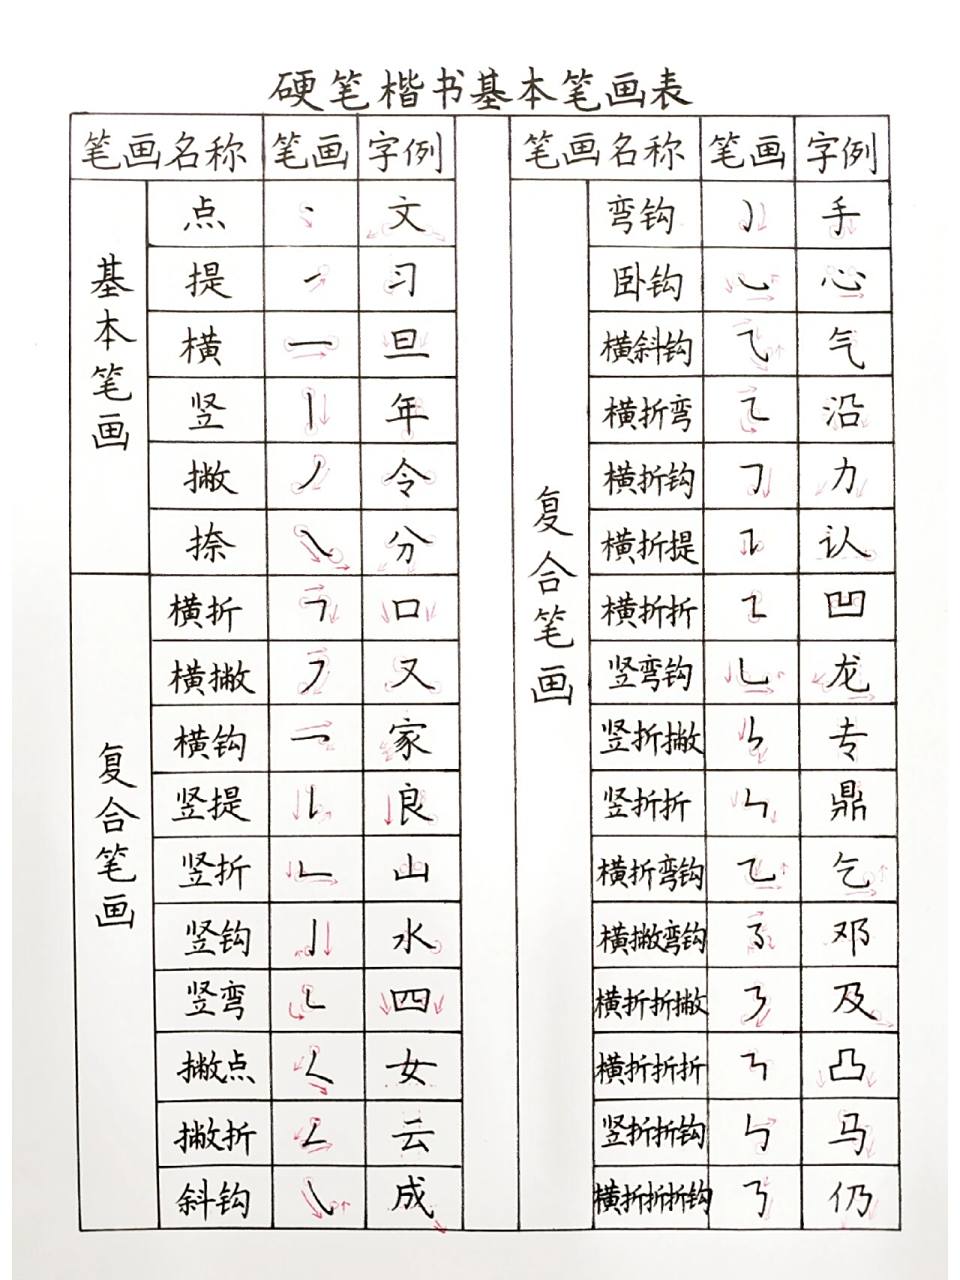 硬笔楷书基本笔画表
笔画名称 笔画 字例
基本笔画
点 丶 文
提 ㇀ 习
横 一 旦
竖 丨 年
撇 丿 令
捺 ㇏ 分
复合笔画
横折 ㇕ 口
横撇 ㇇ 又
横钩 ㇖ 家
竖提 ㇙ 良
竖折 ㇗ 山
竖钩 亅 水
竖弯 ㇄ 四
撇点 ㇛ 女
撇折 ㇜ 云
斜钩 ㇂ 成
笔画名称 笔画 字例
复合笔画
弯钩 ㇁ 手
卧钩 ㇃ 心
横斜钩 ⺄ 气
横折弯 ㇍ 沿
横折钩 ㇆ 力
横折提 ㇊ 认
横折折 ㇅ 凹
竖弯钩 ㇟ 龙
竖折撇 ㇞ 专
竖折折 ㇞ 鼎
横折弯钩 ㇈ 乞
横撇弯钩 ㇌ 邓
横折折撇 ㇋ 及
横折折折 ㇎ 凸
竖折折钩 ㇉ 马
横折折折钩 ㇡ 仍